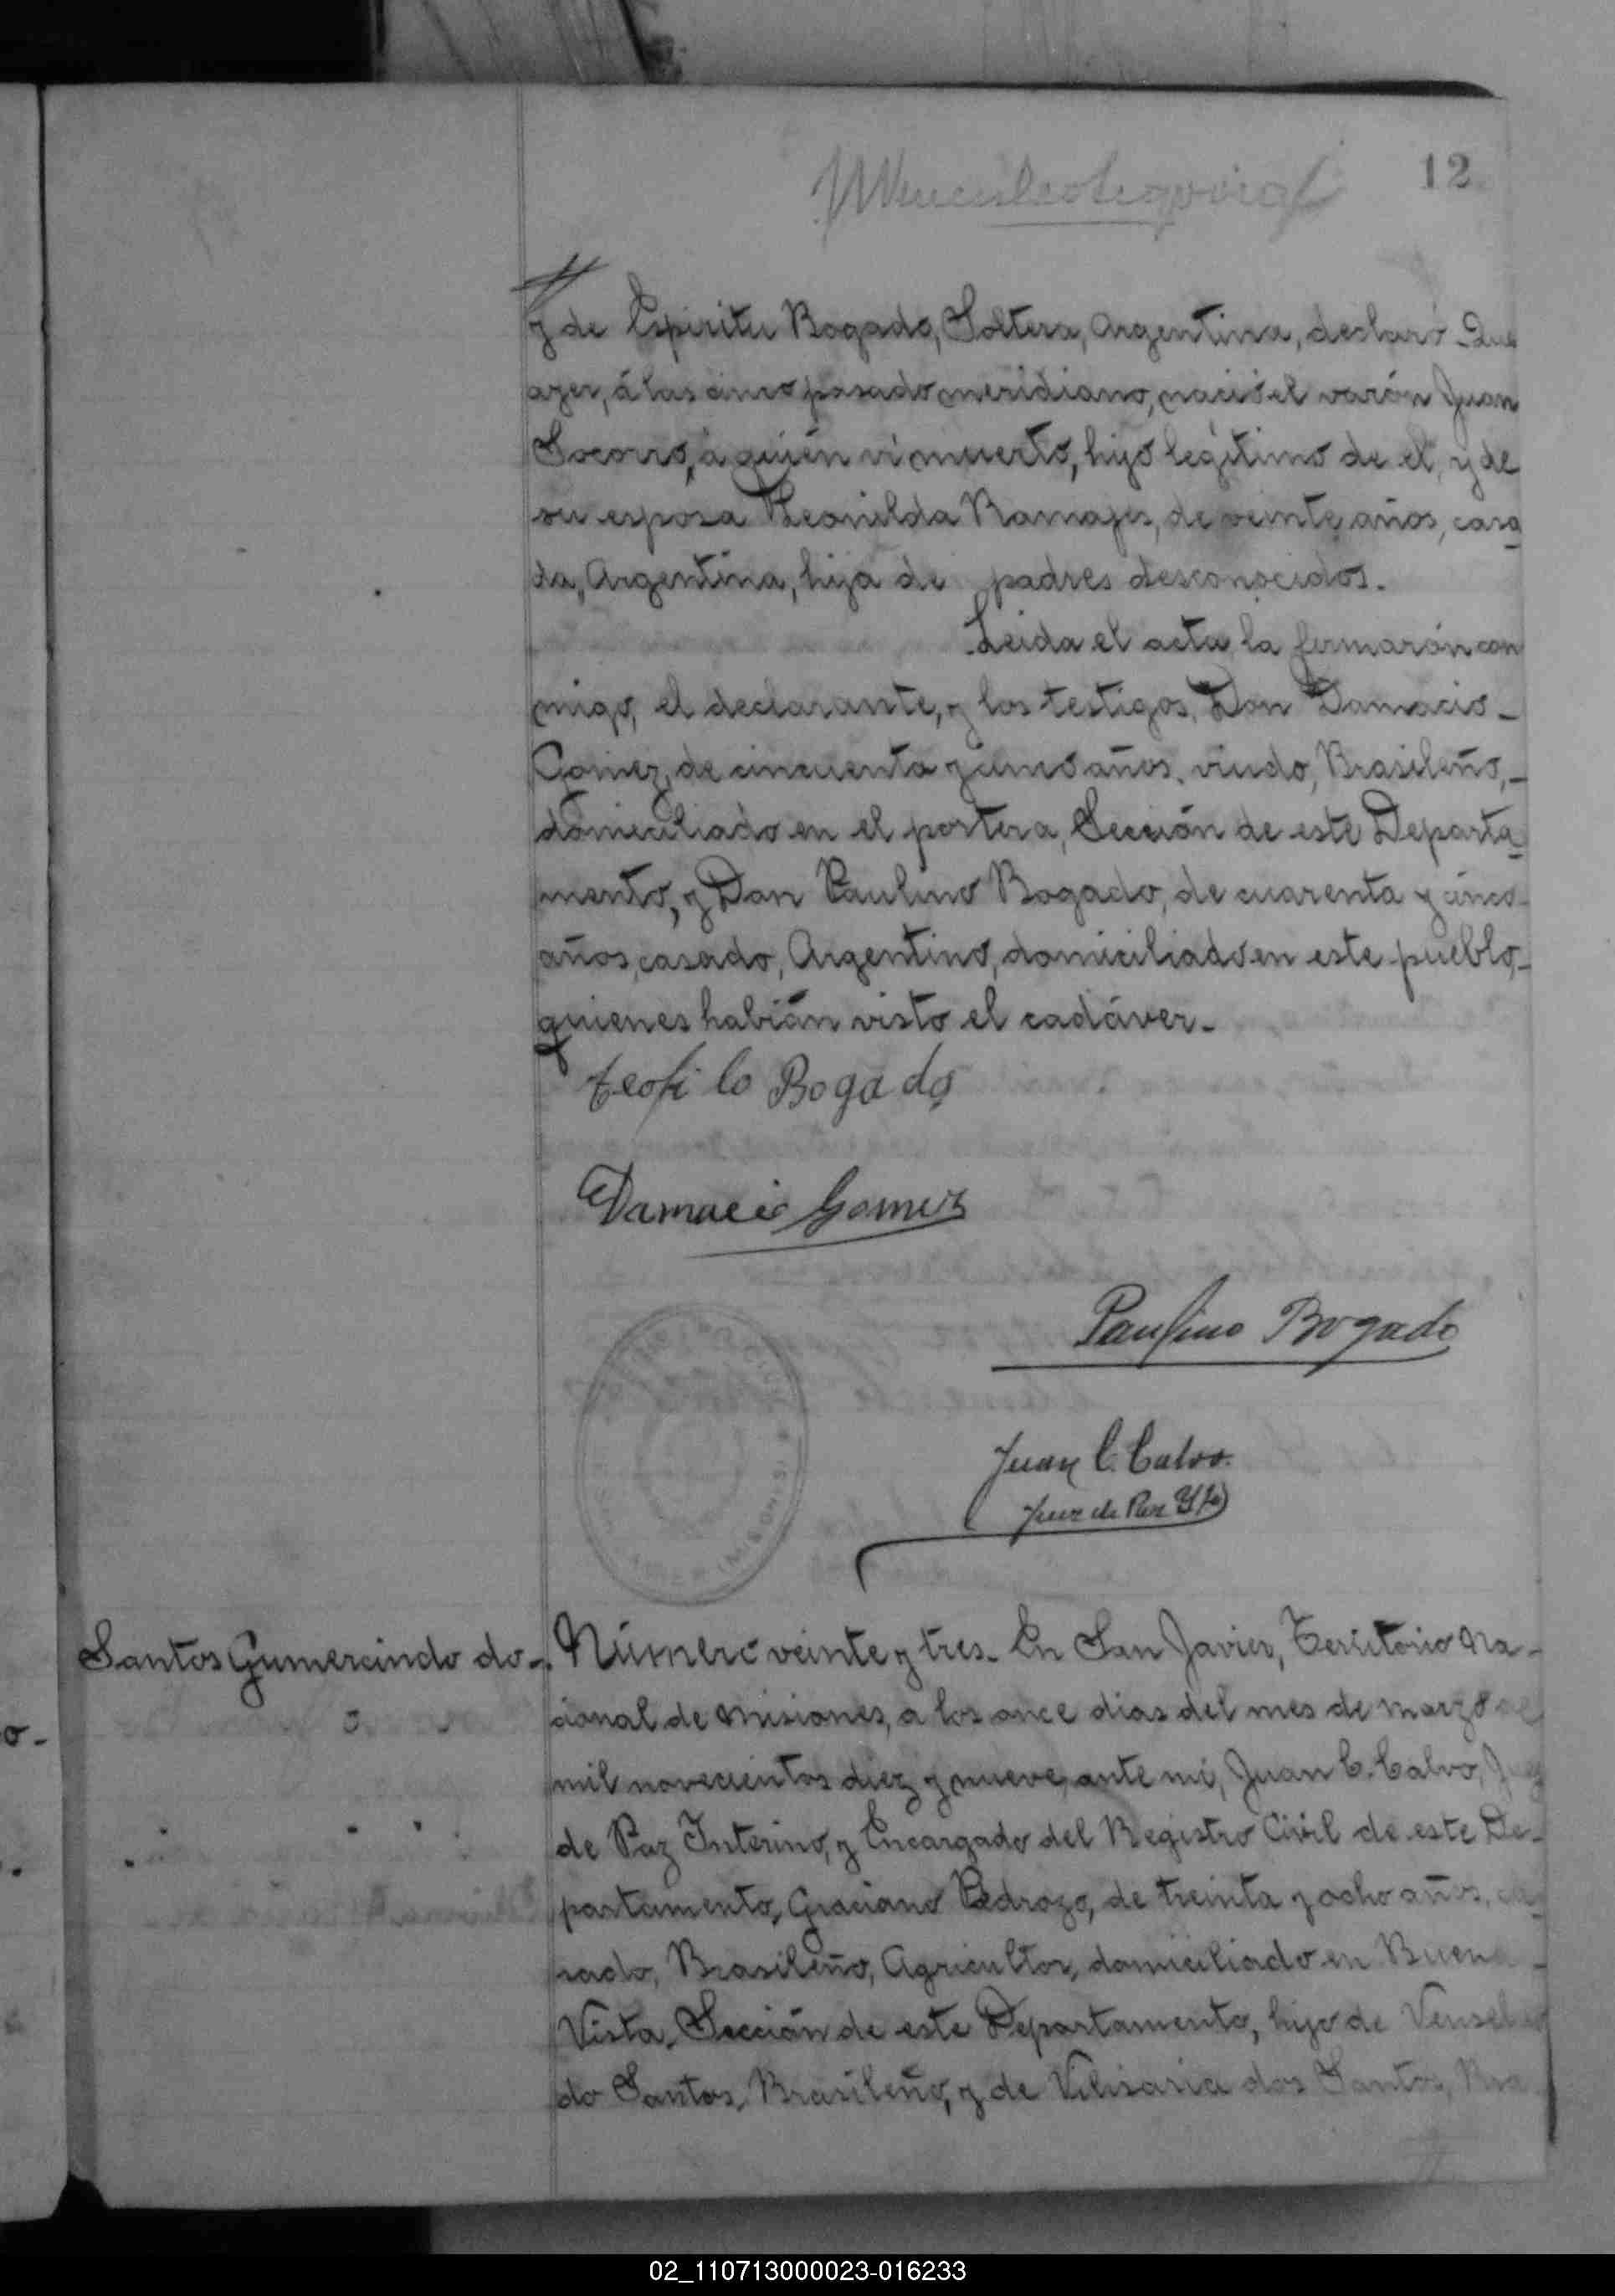 12
y de Espiritu Bogado, Soltera, Argentina, declaró Que
ayer, á las cinco pasado meridiano, nació el varón Juan
Socorro, á quién vi muerto, hijo legítimo de el, y de
su esposa Leonilda Ramajes, de veinte años, casa
da, Argentina, hija de padres desconocidos.
Leida el acta, la firmarón con
migo, el declarante, y los testigos, Don Damacio -
Gomez, de cincuenta y cinco años, viudo, Brasileño, -
domiciliado en el portera, Sección de este Departa
mento, y Don Paulino Bogado, de cuarenta y cinco
años, casado, Argentino, domiciliado en este pueblo, -
quienes habián visto el cadáver. -
teofilo Bogado
Damacio Gomez
Paulino Bogado
Juan C. Calvo.
Juez de Paz
Santos Gumercindo do -.
Número veinte y tres. - En San Javier, Territorio Na -
cional de Misiones, a los once dias del mes de Marzo de
mil novecientos diez y nueve, ante mi, Juan C. Calvo, Juez
de Paz Interino, y Encargado del Registro Civil de este De -
partamento, Graciano Pedrozo, de treinta y ocho años, ca
sado, Brasileño, Agricultor, domiciliado en Buena -
Vista, Sección de este Departamento, hijo de
do Santos, Brasileño, y de Velisaria dos Santos, Bra
o -
02_110713000023-016233